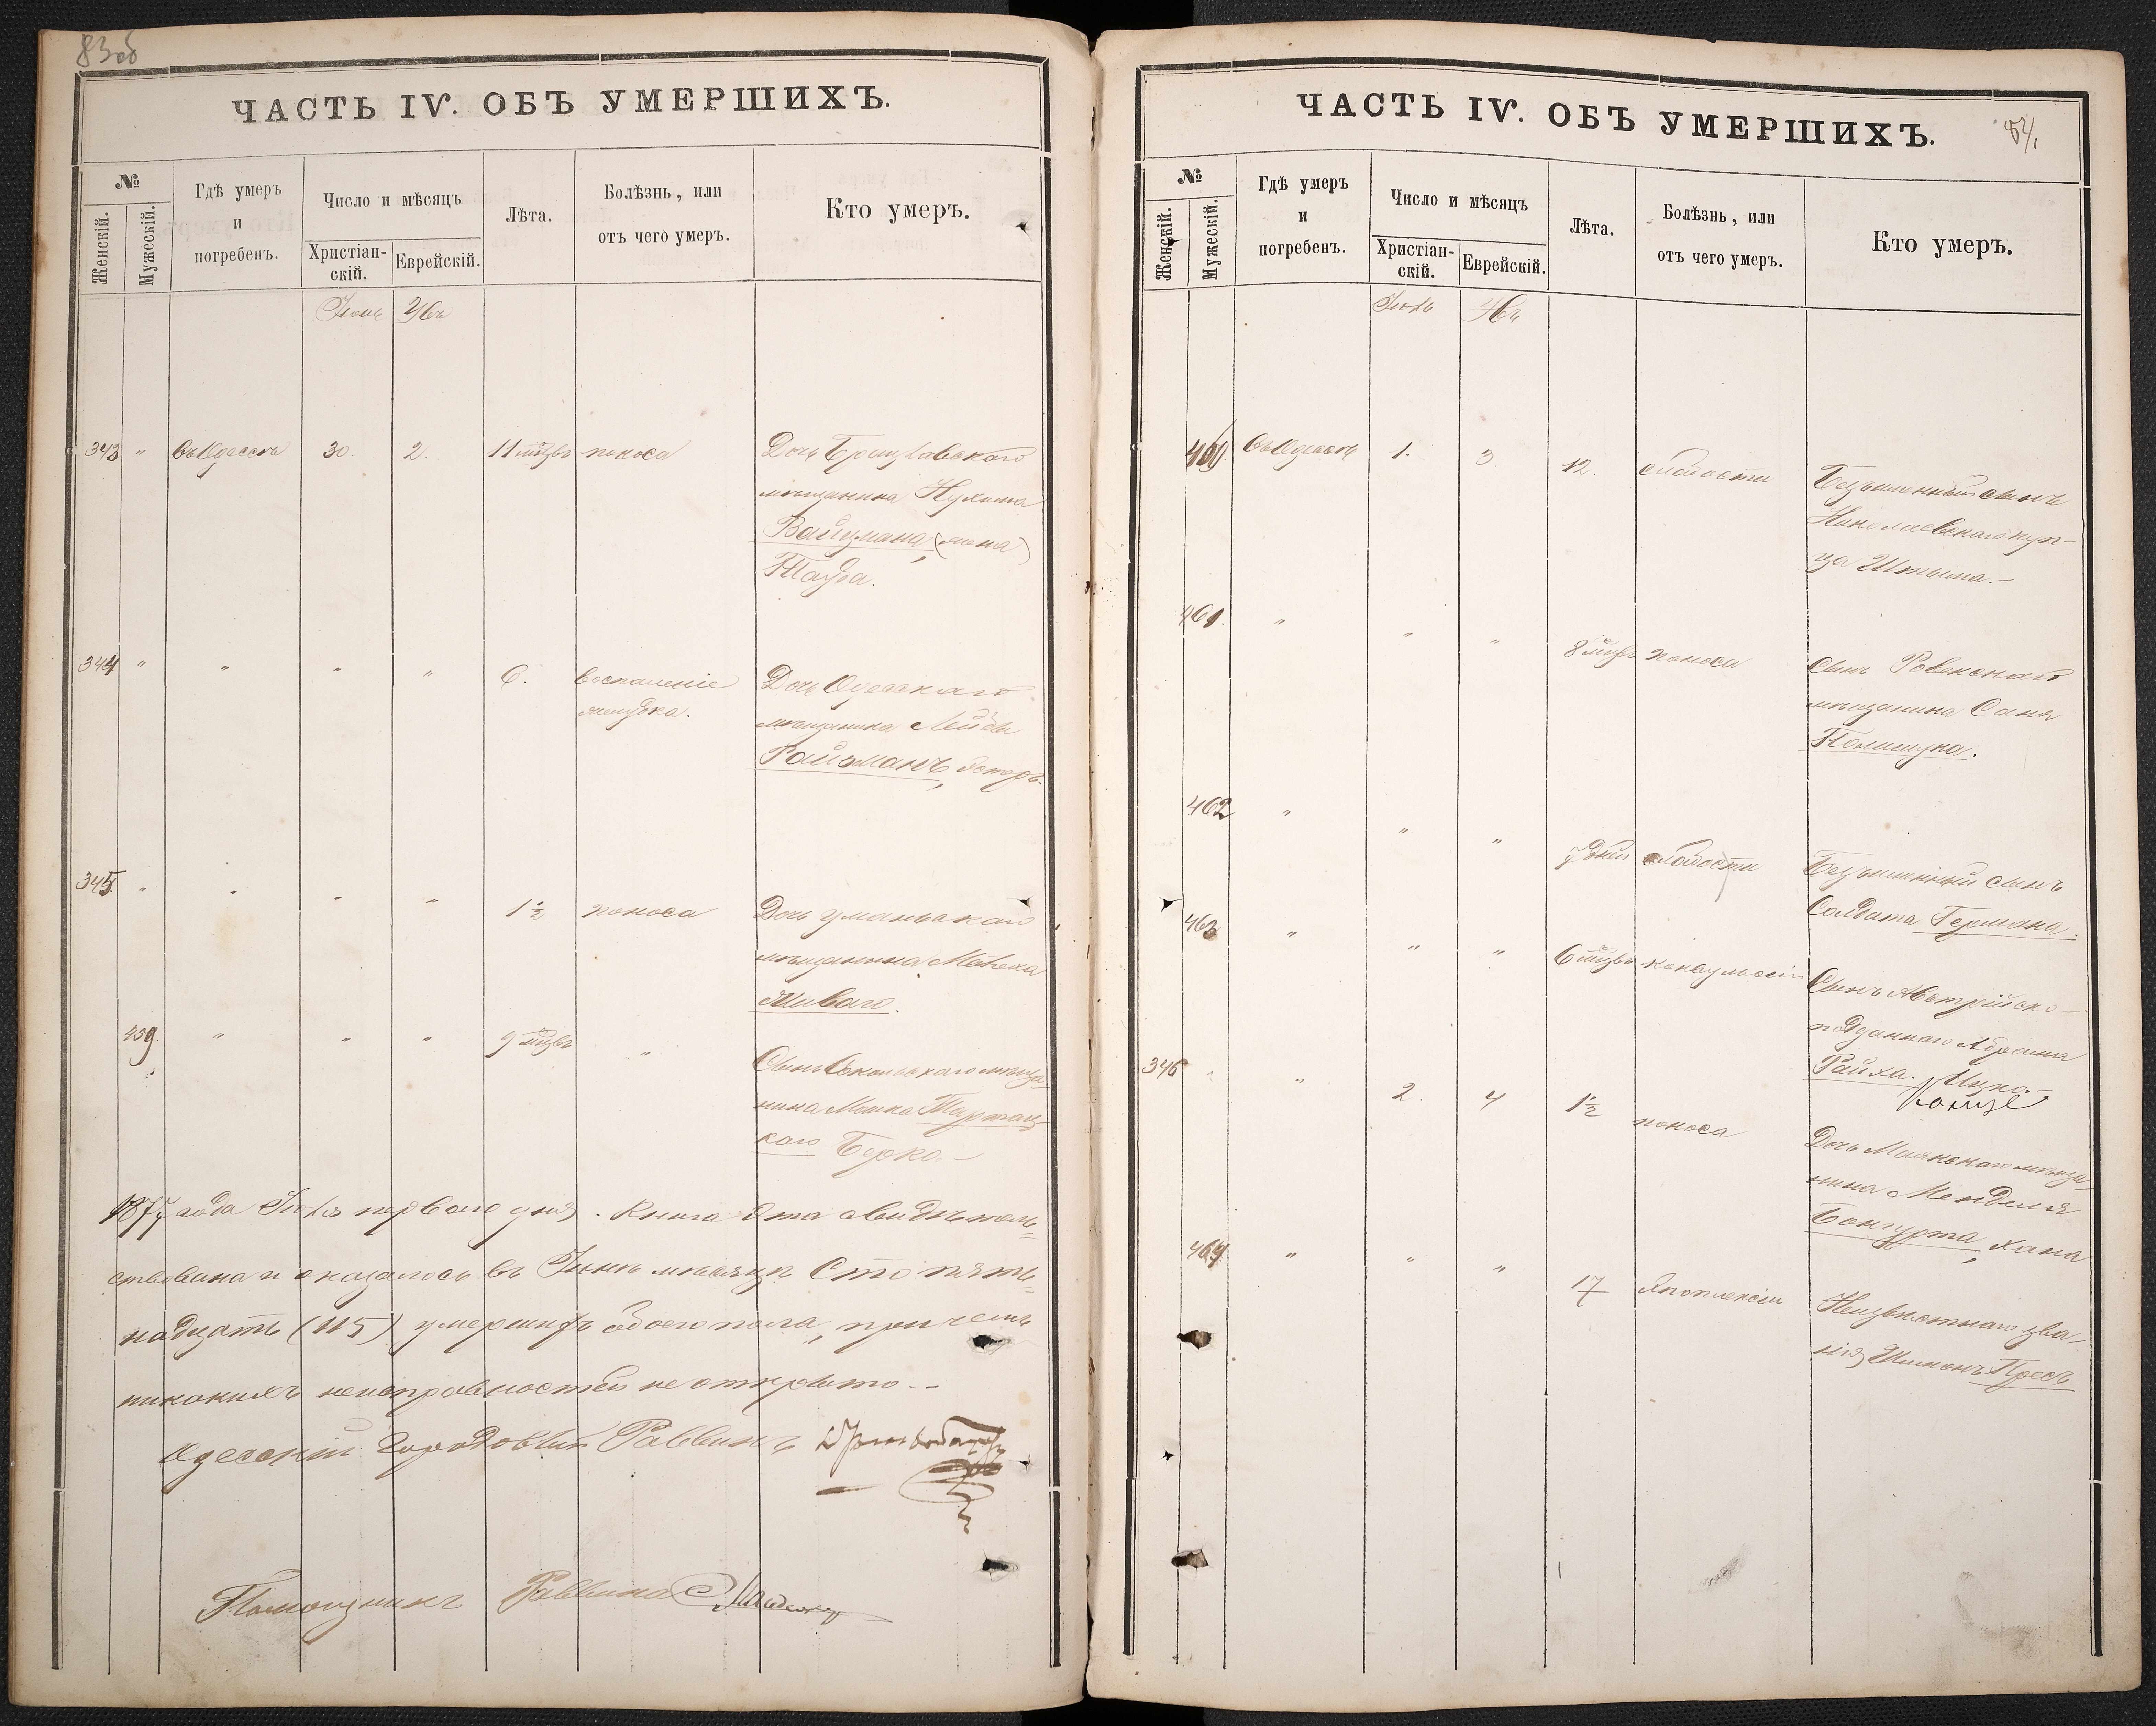 83об
ЧАСТЬ IV. ОБЪ УМЕРШИХЪ.
№
Женскій.
Мужескій.
Гдѣ умеръ
и
погребенъ.
Число и мѣсяцъ
Христіан-
скій.
Еврейскій.
Лѣта.
Болѣзнь, или
отъ чего умеръ.
Кто умеръ.
343 " въ Одессѣ 30. 2. 11 мѣцвъ поноса Дочь Брацлавскаго
мѣщанина Нухима
Вайцмана,
Тауба.
344 " " " " 6. воспаленіе Дочь Одесскаго
желудка. мѣщанина Лейбы
Райзманъ,
345. " " " " 1½ поноса Дочь уманьскаго
мѣщанина
Живаго.
459. " " " 9 мѣцвъ " Сынъ мѣща-
нина Мошка
каго Берко.–
1877 года Іюля перваго дня. Книга эта свидѣтель=
ствована и оказалось въ Іюнѣ мѣсяцѣ Сто пять=
надцать (115) умершихъ обоего пола, при чемъ
никакихъ неисправностей не открыто.–
Одесскій Городовый Раввинъ
Помощникъ Раввина
84.
ЧАСТЬ IV. ОБЪ УМЕРШИХЪ.
№
Женскій.
Мужескій.
Гдѣ умеръ
и
погребенъ.
Число и мѣсяцъ
Христіан-
скій.
Еврейскій.
Лѣта.
Болѣзнь, или
отъ чего умеръ.
Кто умеръ.
Іюль
460 въ Одессѣ 1. 3. 12. слабости Безъименный сынъ
Николаевскаго куп-
ца
461. " " " 8 мѣцвъ поноса Сынъ Ровенскаго
мѣщанина Саня
Полищука.
462 " " " 7 дней слабости Безъименный сынъ
Солдата Германа.
463 " " " 6 мѣцвъ конвульсіи Сынъ Австрійско-
подданнаго Абрама
Райха. Ицко.–
346 " " 2. 4 1½ поноса Дочь Маякскаго мѣща-
нина Менделя
Бонгурта, Хана
464. " " " 17 Апоплексіи Неизвѣстнаго зва-
нія Шимонъ Пресъ